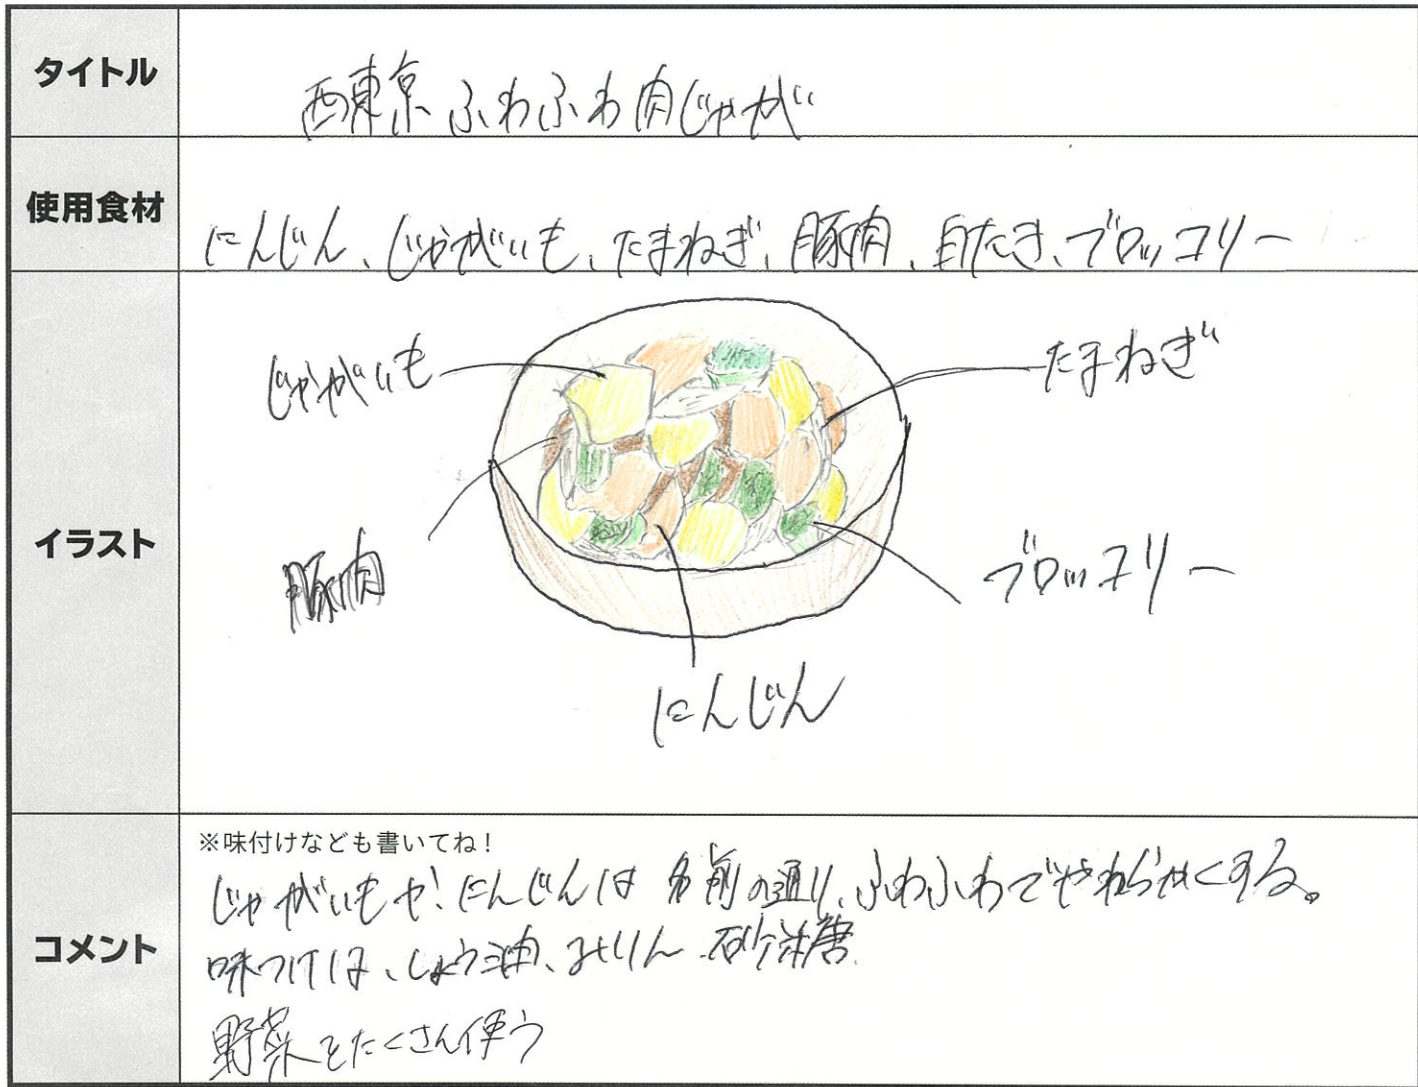 タイトル
西東京ふわふわ肉じゃが
使用食材
にんじん、じゃがいも、たまねぎ、豚肉、白たき、ブロッコリー
イラスト
じゃがいも
たまねぎ
豚肉
ブロッコリー
にんじん
コメント
※味付けなども書いてね!
じゃがいもや、にんじんは名前の通り、ふわふわでやわらかくする。
味つけは、しょう油、みりん、砂糖
野菜をたくさん使う